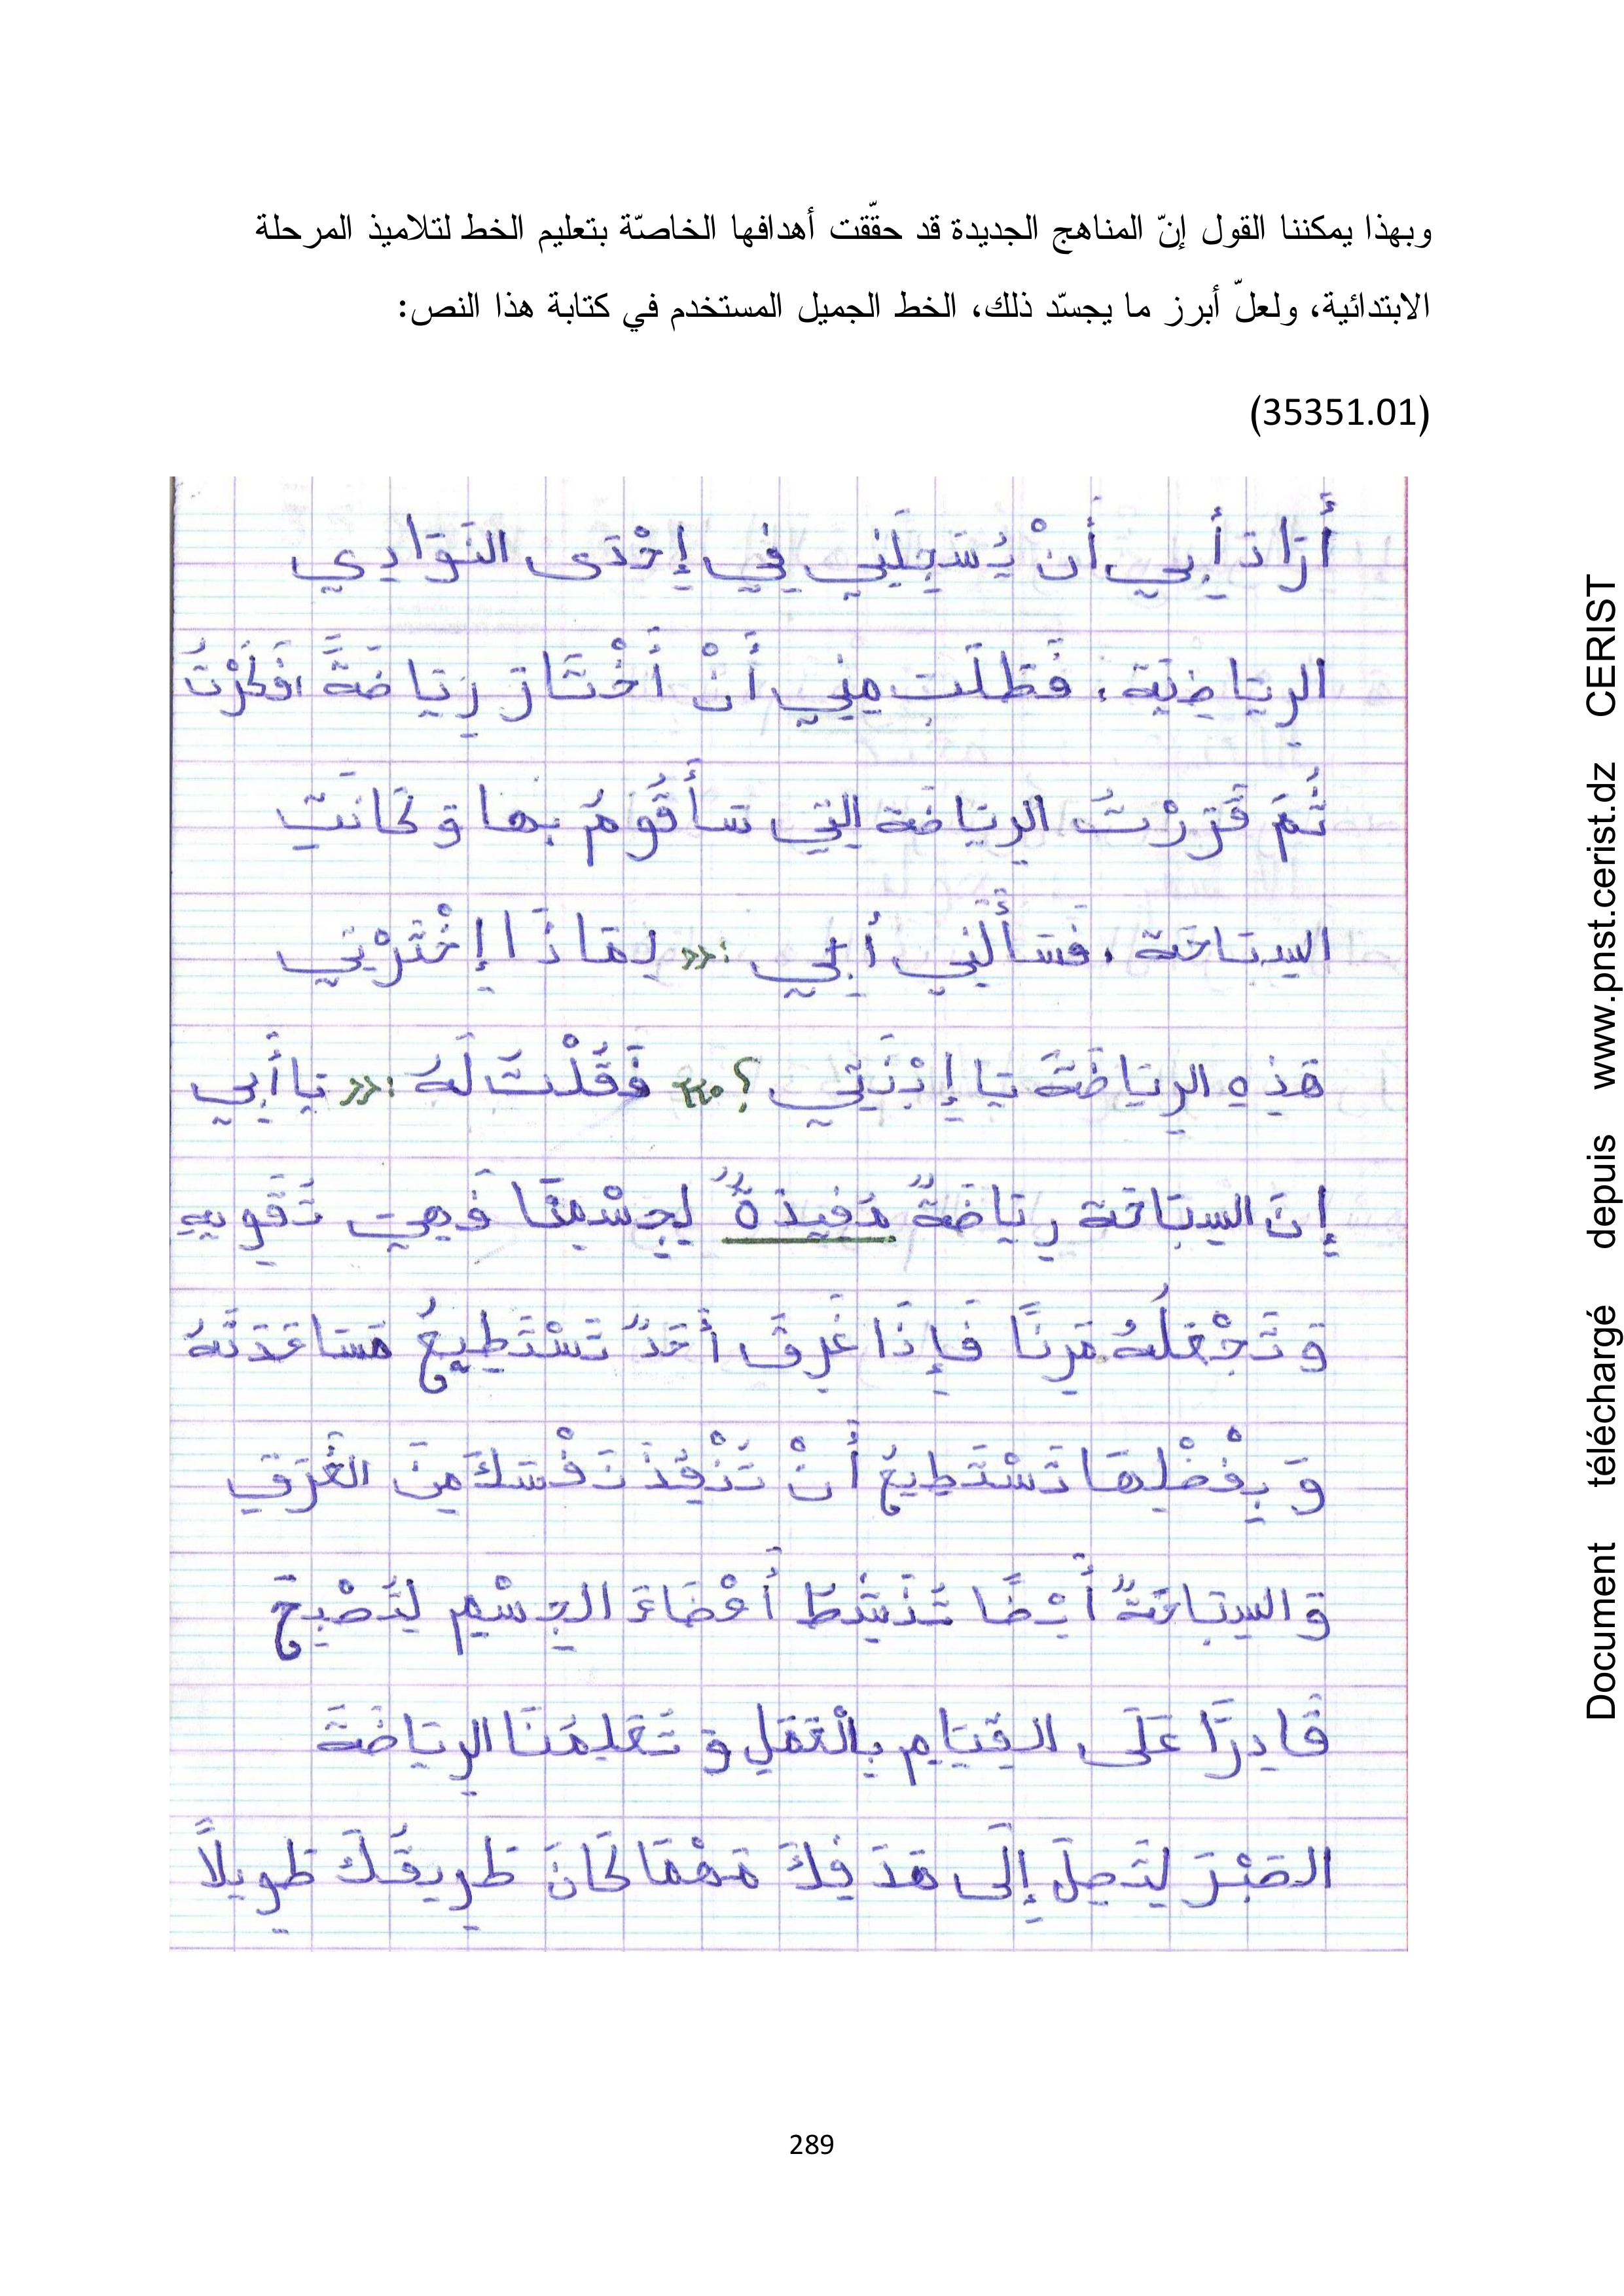 وبهذا يمكننا القول إنّ المناهج الجديدة قد حقّقت أهدافها الخاصّة بتعليم الخط لتلاميذ المرحلة
الابتدائية، ولعلّ أبرز ما يجسّد ذلك، الخط الجميل المستخدم في كتابة هذا النص:
(35351.01)
أَرَادَ أَبِي أَنْ يُسَجِلَنِي فِي إِحْدَى النَوَادِي
الرِيَاضِيَة. فَطَلَبَ مِنِي أَنْ أَخْتَارَ رِيَاضَةً، فَكَرْتُ
ثُمَ قَرَرْتُ الرِيَاضَة التِي سَأَقُومُ بِهَا وَ كَانَتْ
السِبَاحَة. فَسَأَلَنِي أَبِي :«لِمَاذَا إِخْتَرْتِي
هَذِهِ الرِيَاضَةَ يَا إِبْنَتِي ؟» فَقُلْتُ لَهُ :«يَا أَبِي
إِنَ السِبَاحَة رِيَاضَةٌ مُفِيدَةٌ لِجِسْمِنَا فَهِيَ تُقَوِيهِ
وَ تَجْعَلُهُ مَرِنًا فَإِذَا غَرِقَ أَحَدٌ تَسْتَطِيعُ مُسَاعَدَتَهُ
وَ بِفَضْلِهَا تَسْتَطِيعُ أَنْ تُنْقِذَ نَفْسَكَ مِنَ الغَرَقِ
وَ السِبَاحَةٌ أَيْضًا تُنَشِطُ أَعْضَاءَ الجِسْمِ لِتُصْبِحَ
قَادِرًا عَلَى القِيَامِ بِالْعَمَلِ وَ تُعَلِمُنَا الرِيَاضَةَ
الصَبْرَ لِتَصِلَ إِلَى هَدَفِكَ مَهْمَا كَانَ طَرِيقُكَ طَوِيلاً
289
Document téléchargé depuis www.pnst.cerist.dz CERIST